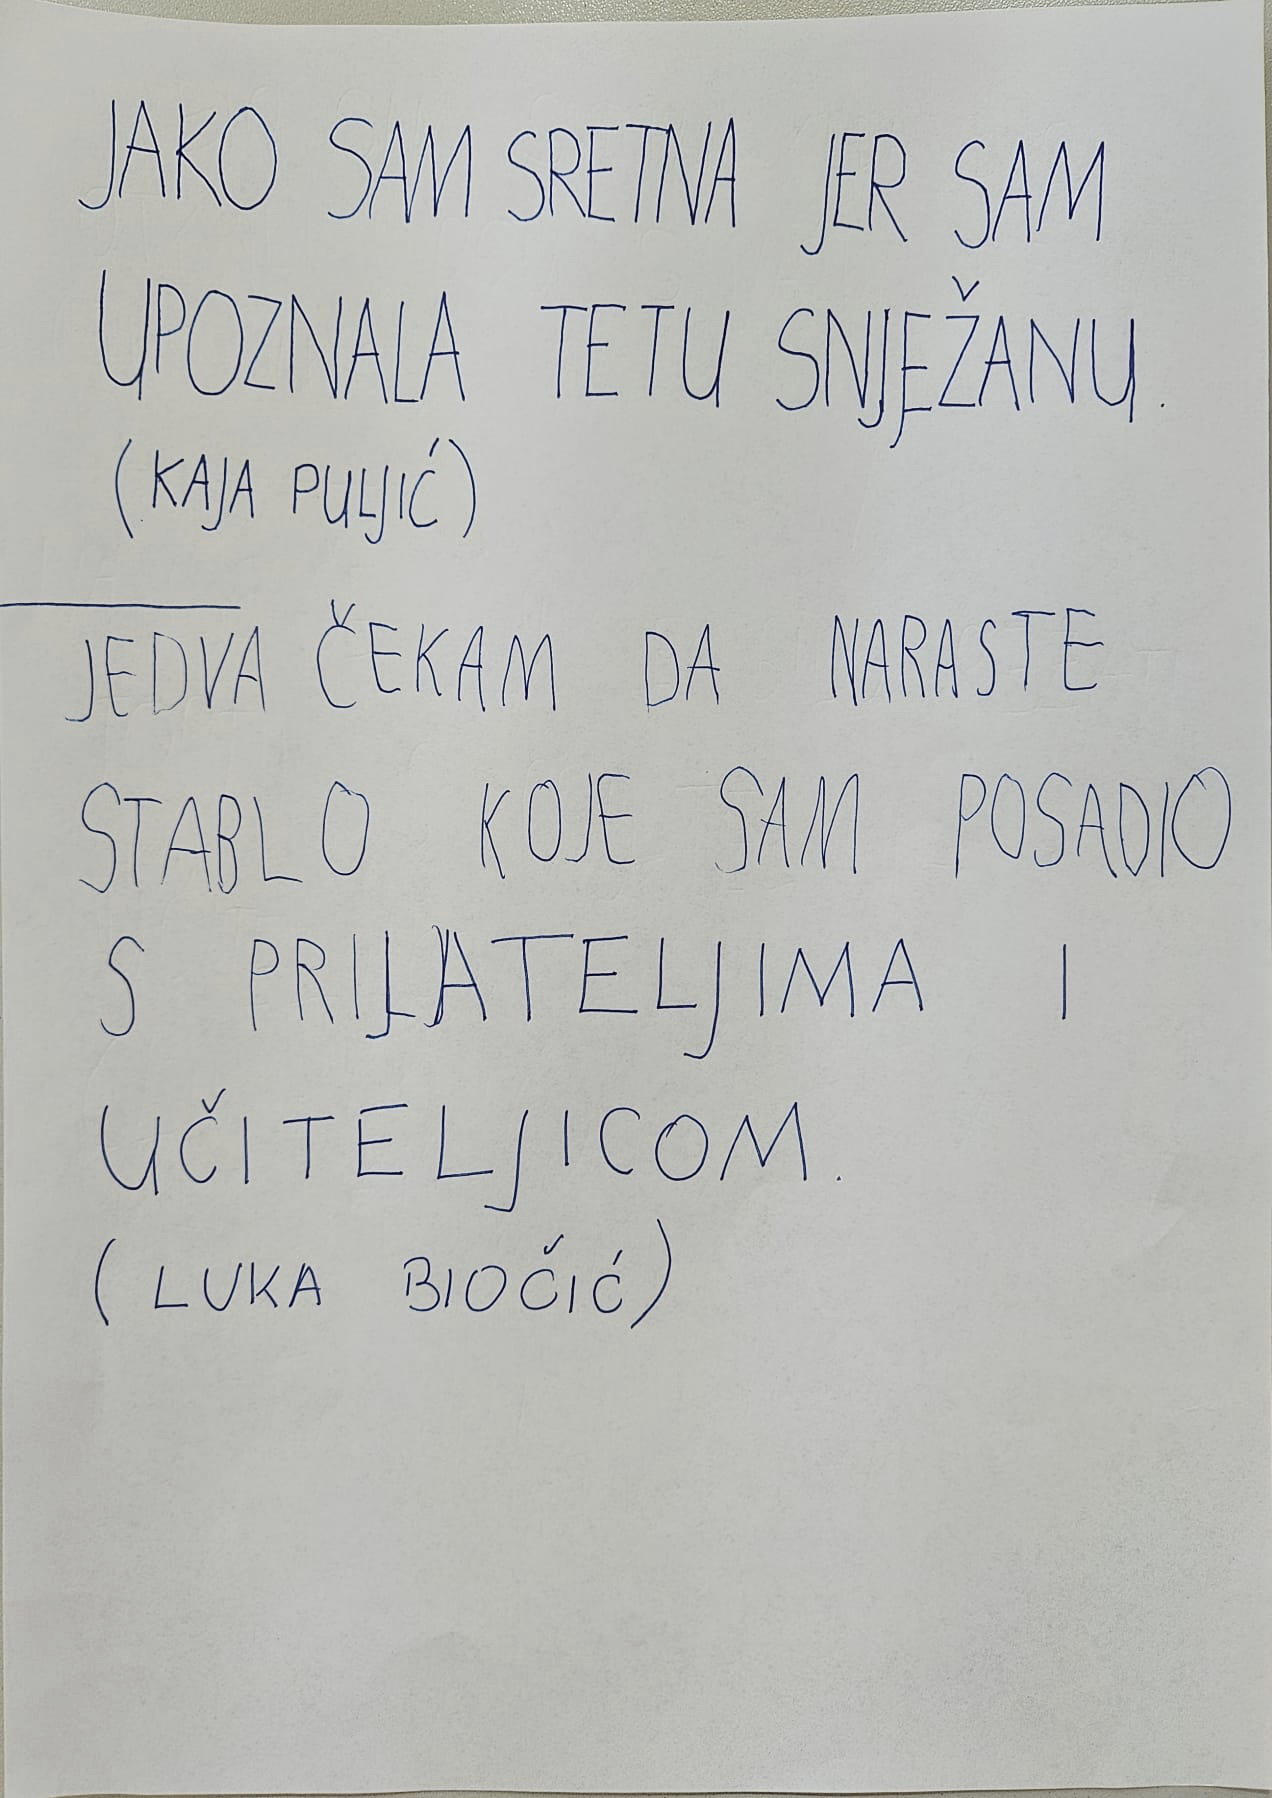 JAKO SAM SRETNA JER SAM
UPOZNALA TETU SNJEŽANU.
(KAJA PULJIĆ)
JEDVA ČEKAM DA NARASTE
STABLO KOJE SAM POSADIO
S PRIJATELJIMA I
UČITELJICOM.
(LUKA BIOČIĆ)